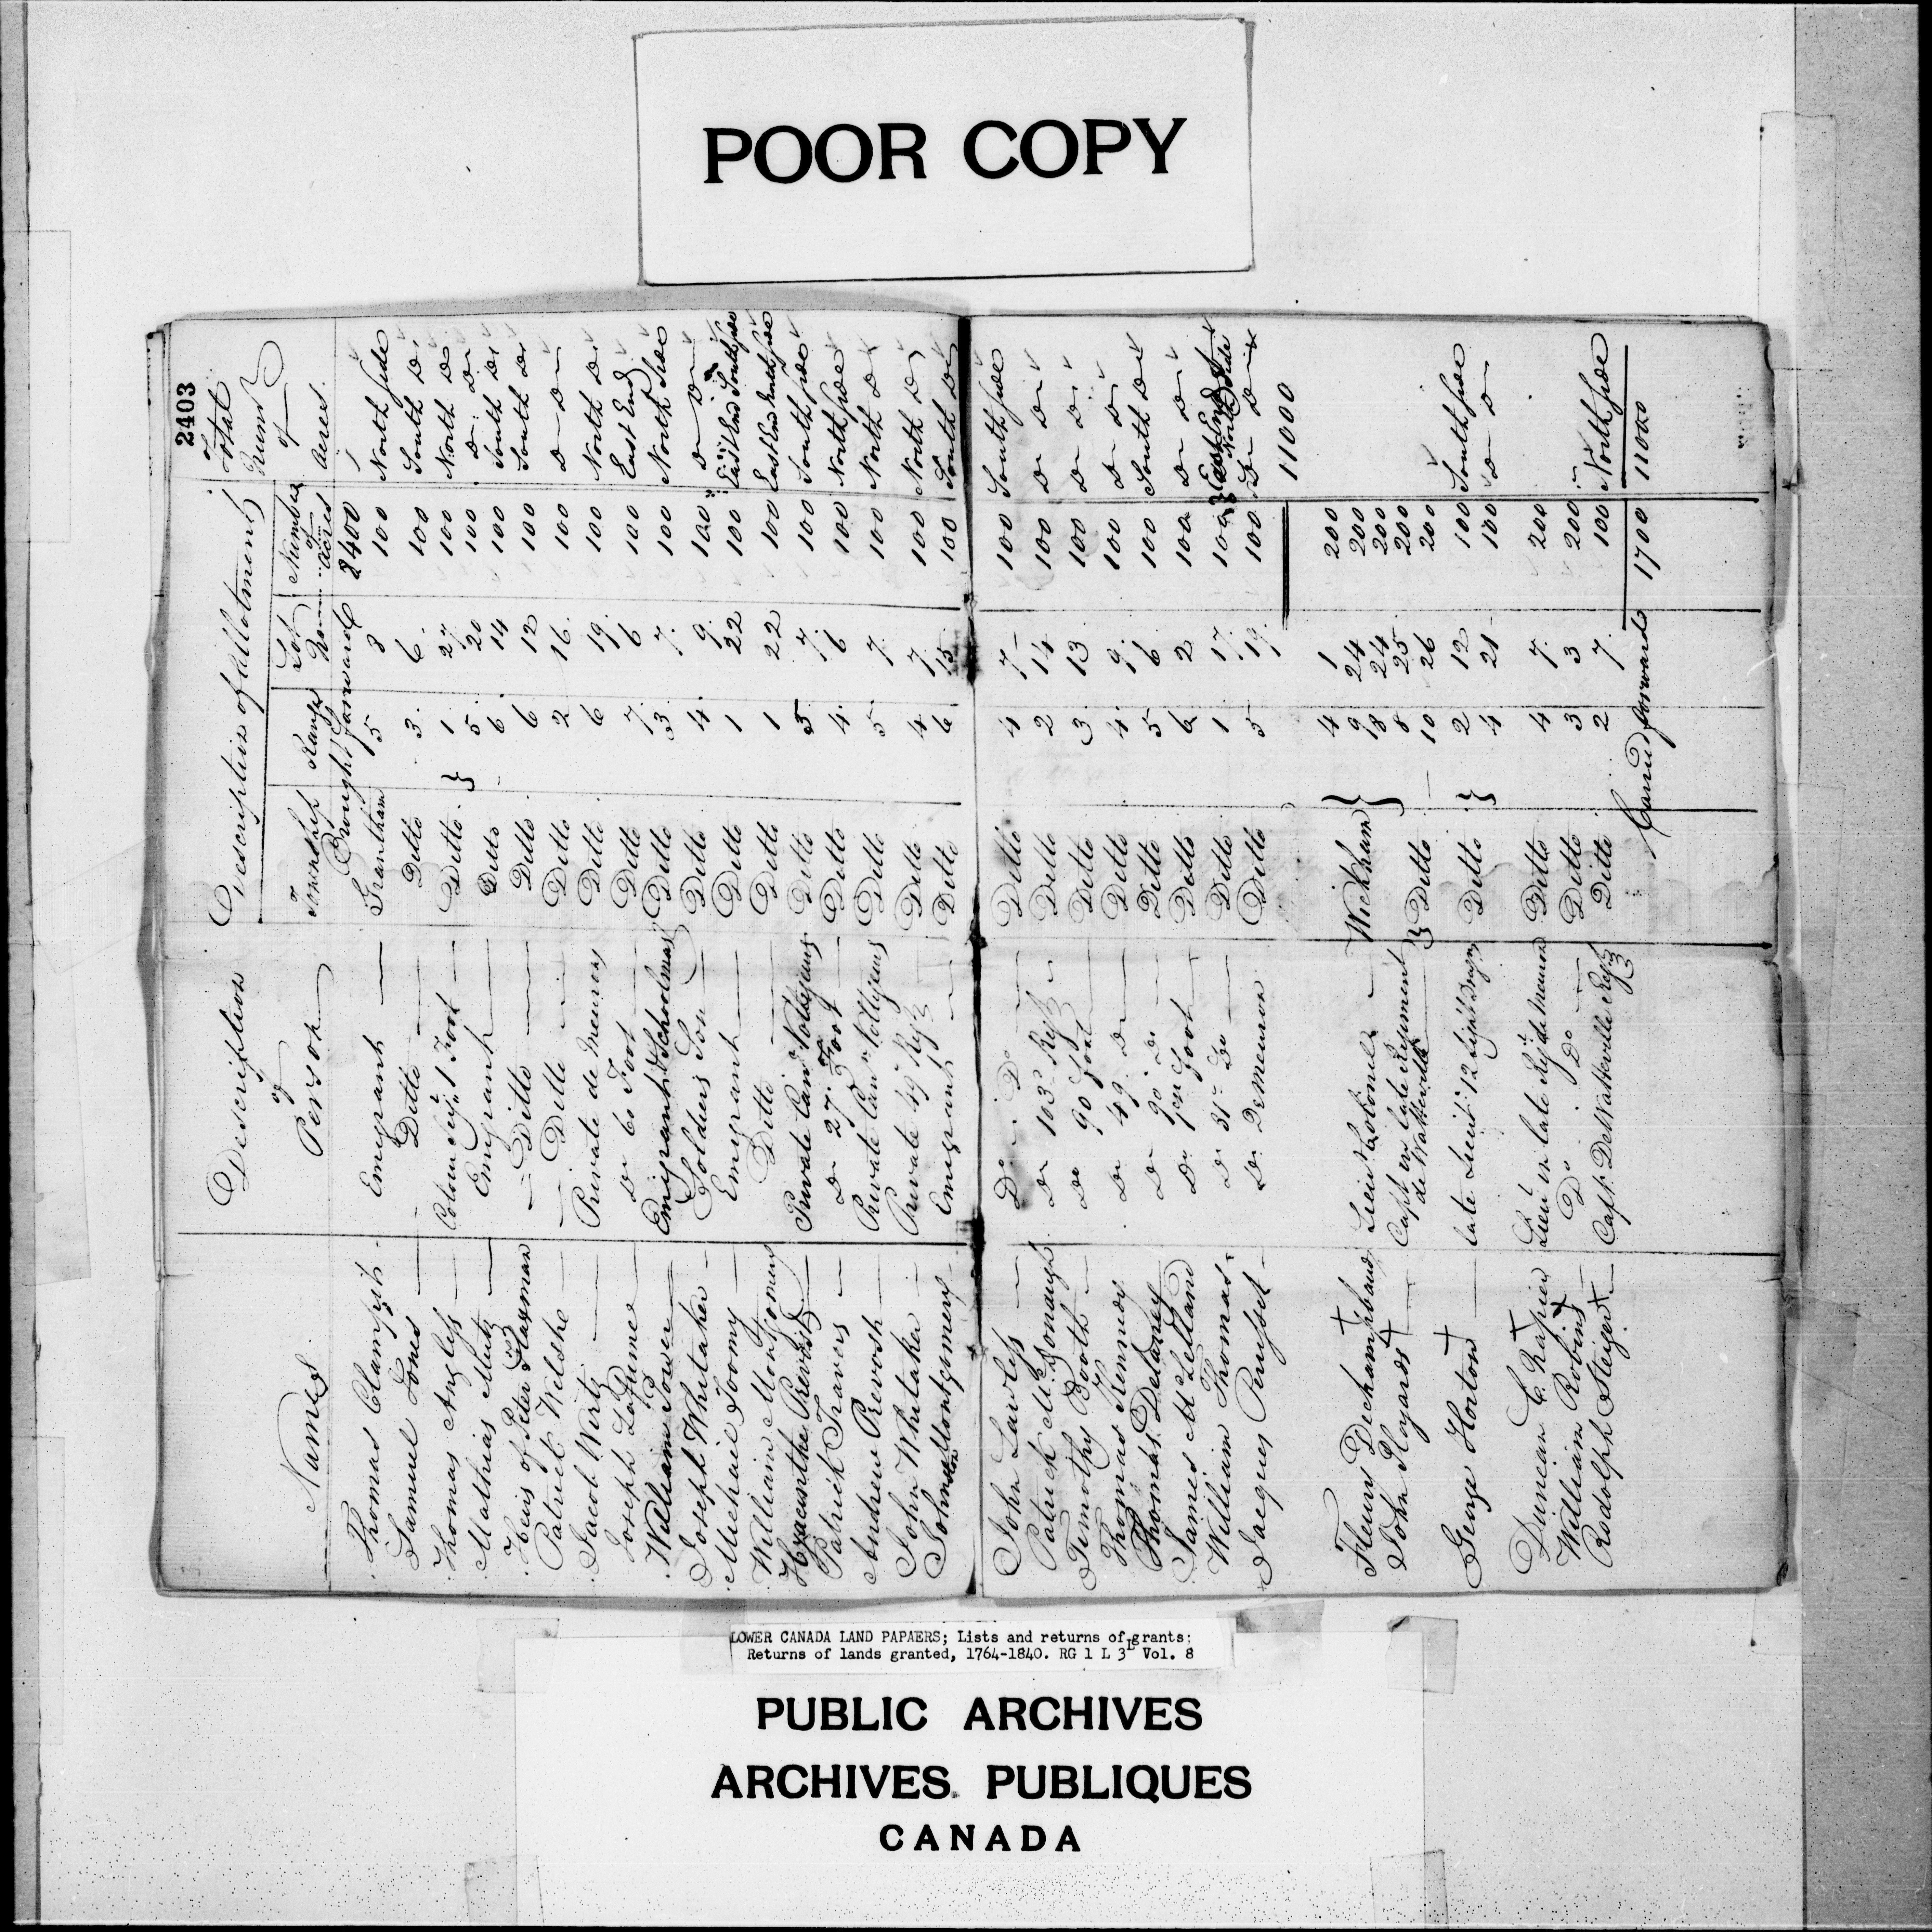 POOR COPY
2403
Names
Description of Person
Description of Allotment
Township Range Lot No. Number of acres
Total Numb of Acres
Brought forward 8400
Thomas Clampit Emigrant Grantham 5 8 100 North side
Samuel Jones Ditto Ditto 3 6 100 South Do
Thomas Angless Colour Serjt 1 Foot Ditto 1 27 100 North Do
5 20 100 Do Do
Mathias Mutz Emigrant Ditto 6 14 100 South Do
Heirs of Peter Ditto Ditto 6 12 100 South Do
Patrick Welshe Ditto Ditto 2 16 100 Do Do
Jacob Wirtz Private de Meurons Ditto 6 19 100 North Do
Joseph Do 60 Foot Ditto 7 6 100 East End
William Power Emigrant Schoolmaster Ditto 3 7 100 North side
Joseph Whitaker Soldiers Son Ditto 4 9 100 Do Do
Michael Toomy Emigrant Ditto 1 22 100 East End South side
William Montgomery Ditto Ditto 1 22 100 East End side
Hyacinthe Prevost Private Can Voltigeurs Ditto 5 7 100 South side
Patrick Travers Do 27 Foot Ditto 4 6 100 North side
Andrew Prevost Private Can Voltigeurs Ditto 5 7 100 North Do
John Whitaker Private 49 Regt Ditto 4 7 100 North Do
Johnston Montgomery Emigrant Ditto 6 15 100 South Do
John Lawless Do Do Ditto 4 7 100 South side
Patrick McDonaugh Do 103 Regt Ditto 2 14 100 Do Do
Timothy Booth Do 90 Foot Ditto 3 13 100 Do Do
Thomas Kennedy Do 49 Do Ditto 4 9 100 Do Do
Thomas Delaney Do 90 Do Ditto 5 6 100 South Do
James McLelland Do Foot Ditto 6 2 100 Do Do
William Thomas Do 31 Do Ditto 1 17 100 North side
Jacques Do Demeuron Ditto 5 19 100 Do Do
11000
Fleury Dechambaud Lieut Colonel Wickham 4 1 200
9 24 200
John Hayards Capt in late Regiment de Watteville Ditto 24 200
8 25 200
10 26 200
George Horton late Lieut 12 Light Drags Ditto 2 12 100 South side
4 21 100 Do Do
Duncan C. Rapier Lieut in late Regt de Meuron Ditto 4 7 200
William Robins Do Do Ditto 3 3 200
Rodolph Steiger Capt. DeWatteville Regt Ditto 2 7 100 North side
Carried forward 1700 11000
LOWER CANADA LAND PAPAERS; Lists and returns of grants:
Returns of lands granted, 1764-1840. RG 1 L 3L Vol. 8
PUBLIC ARCHIVES
ARCHIVES PUBLIQUES
CANADA